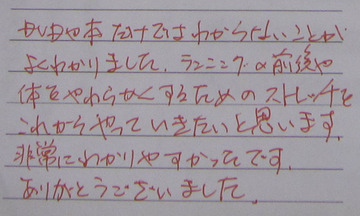 や本だけではわからないことが
よくわかりました。ランニングの前後や
体をやわらかくするためのストレッチを
これからやっていきたいと思います。
非常にわかりやすかったです。
ありがとうございました。